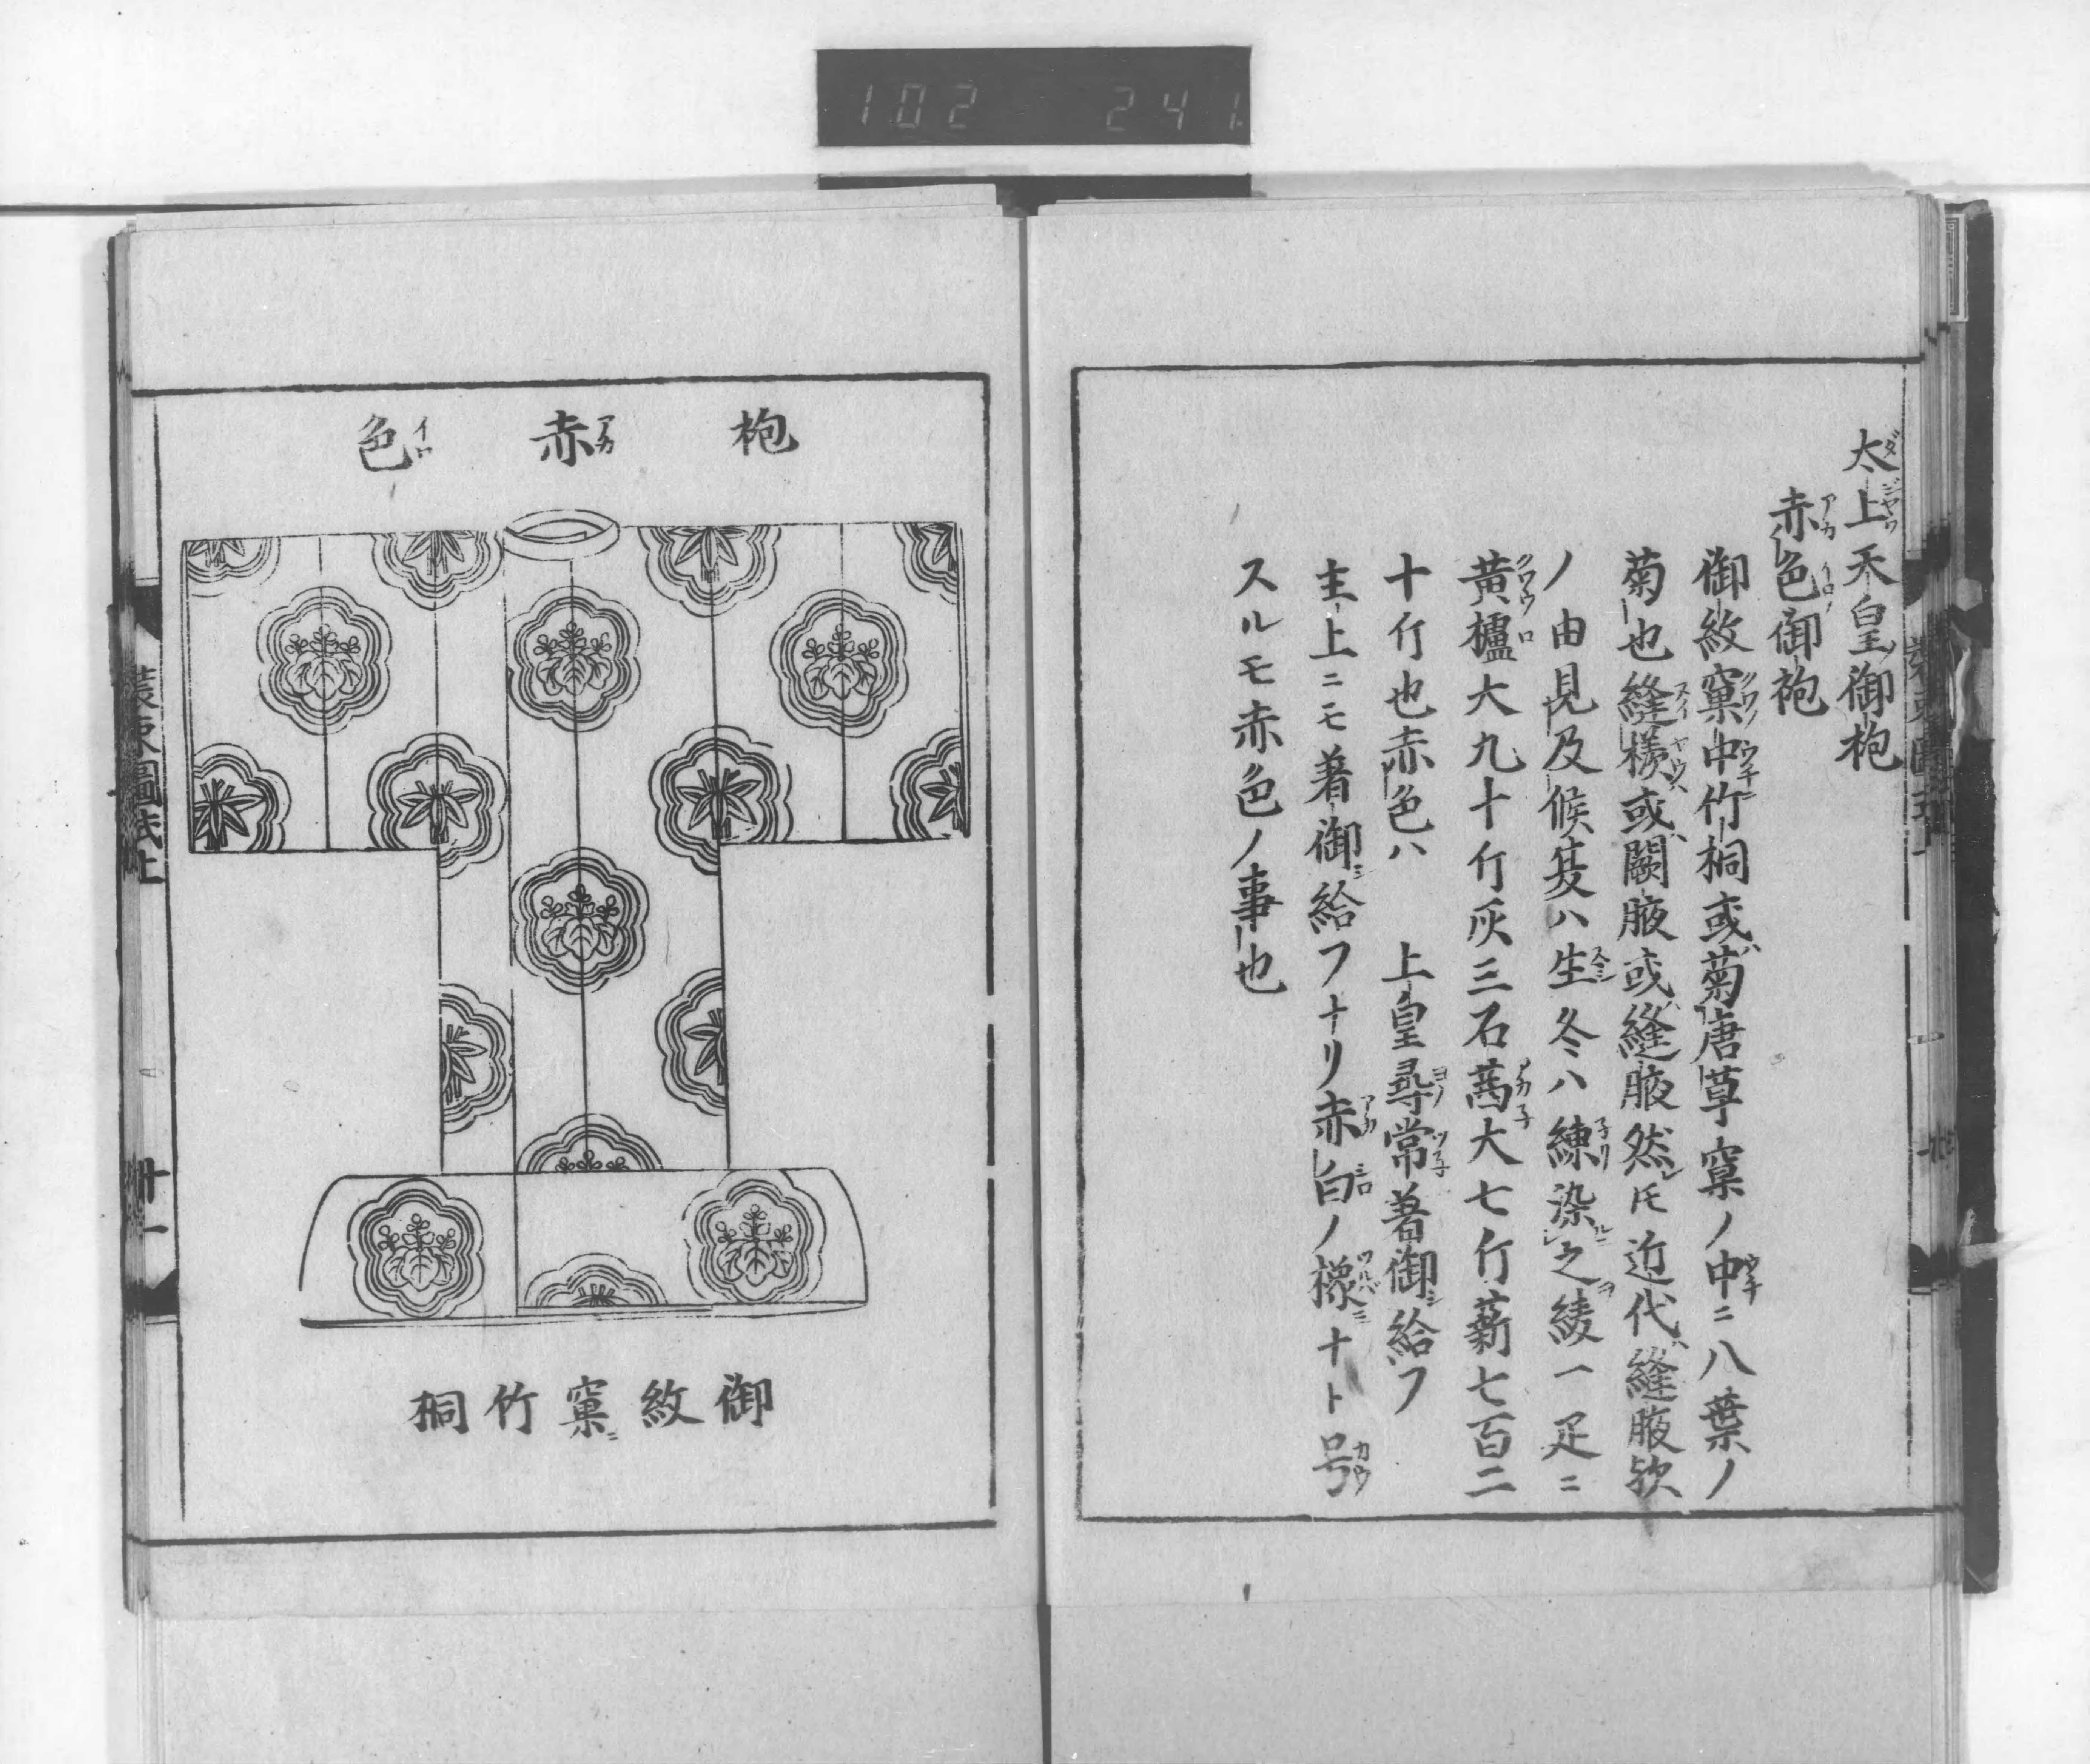 102 241
太上天皇御袍
赤色御袍
御紋窠中竹桐或菊唐草窠ノ中ニ八葉ノ
菊也縫様或闕腋或縫腋然レ𪜈近代縫腋欤
ノ由見及候夏ハ生冬ハ練染之綾一疋ニ
黄櫨大九十斤灰三石茜大七斤薪七百二
十斤也赤色ハ　上皇尋常著御給フ
主上ニモ著御給フナリ赤白ノ橡ナト号
スルモ赤色ノ事也
袍赤色
御紋窠竹桐
装束圖式上
卅一